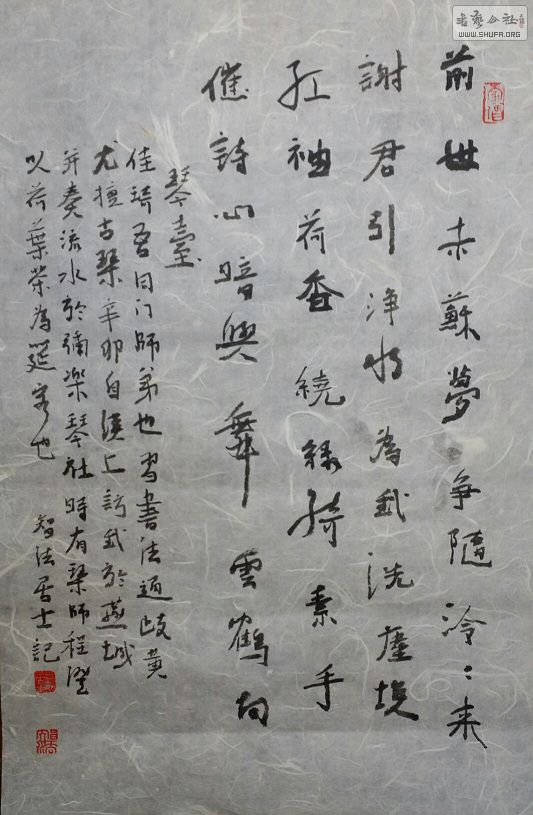 前世未蘇夢爭隨泠〻来
謝君引淨水為我洗塵埃
紅袖荷香繞綠綺素手
催詩心暗與舞雲鶴向
琴臺
佳琦吾同门師弟也習書法通歧黄
尤擅古琴辛卯自漢上訪我於燕城
并奏流水於彌樂琴社時有琴師程
以荷葉茶為延客也
智法居士記
書藝公社
WWW.SHUFA.ORG